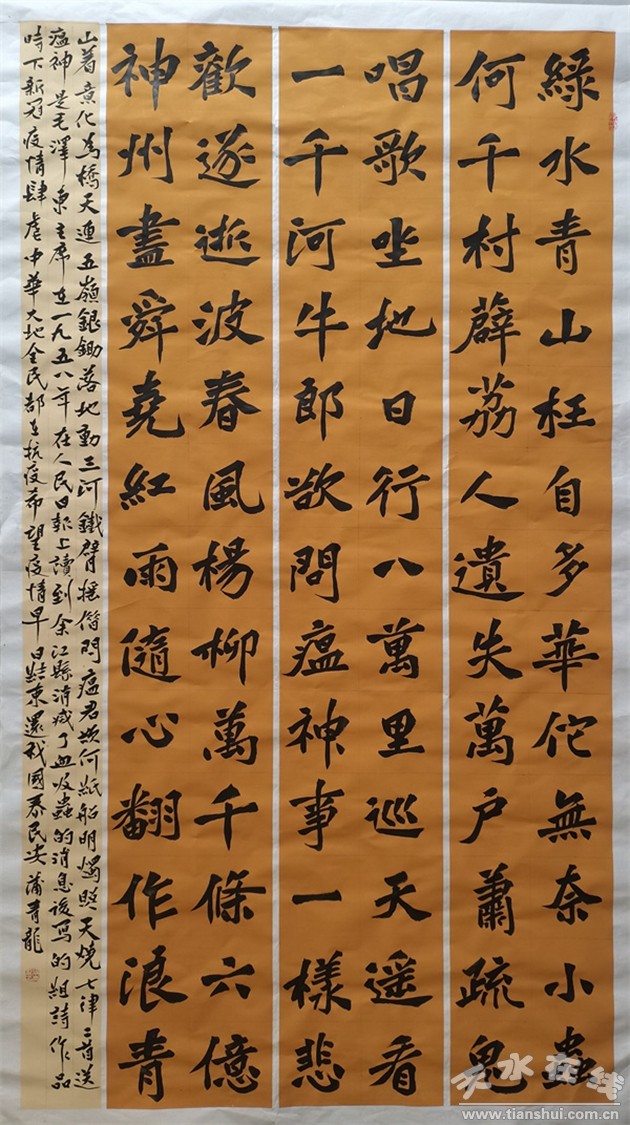 綠水青山枉自多華佗無奈小蟲
何千村薜荔人遺失萬戶蕭疏鬼
唱歌坐地日行八萬里巡天遥看
一千河牛郎欲問瘟神事一樣悲
歡遂逝波春風楊柳萬千條六億
神州盡舜堯紅雨隨心翻作浪青
山着意化為橋天連五嶺銀鋤落地動三河鐵臂摇借問瘟君欲何紙船明燭照天燒七律二首送
瘟神是毛澤東主席在一九五八年在人民日報上讀到余江縣消滅了血吸蟲的消息後写的組詩作品
時下新冠疫情肆虐中華大地全民都在抗疫希望疫情早日結束還我國泰民安蒲青龍
天水在线
www.tianshui.com.cn